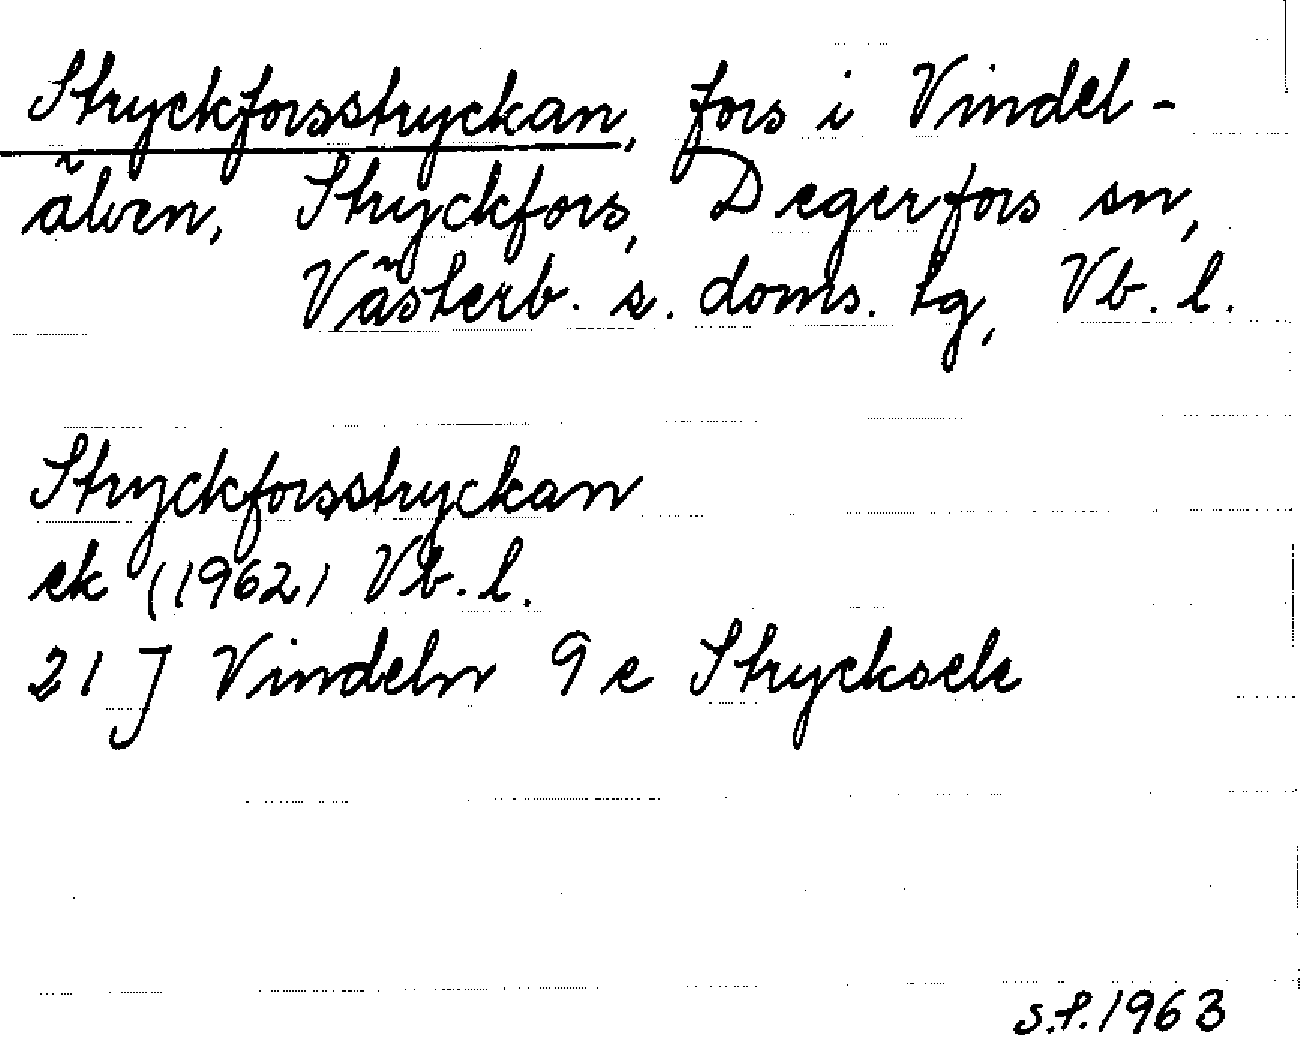 Stryckforsstryckan, fors i Vindel-
älven, Stryckfors, Degerfors sn,
Västerb. s. doms. tg, Vb. l.
Stryckforsstryckan
ek (1962) Vb. l.
21 J Vindeln 9 e Strycksele
S.P. 1963